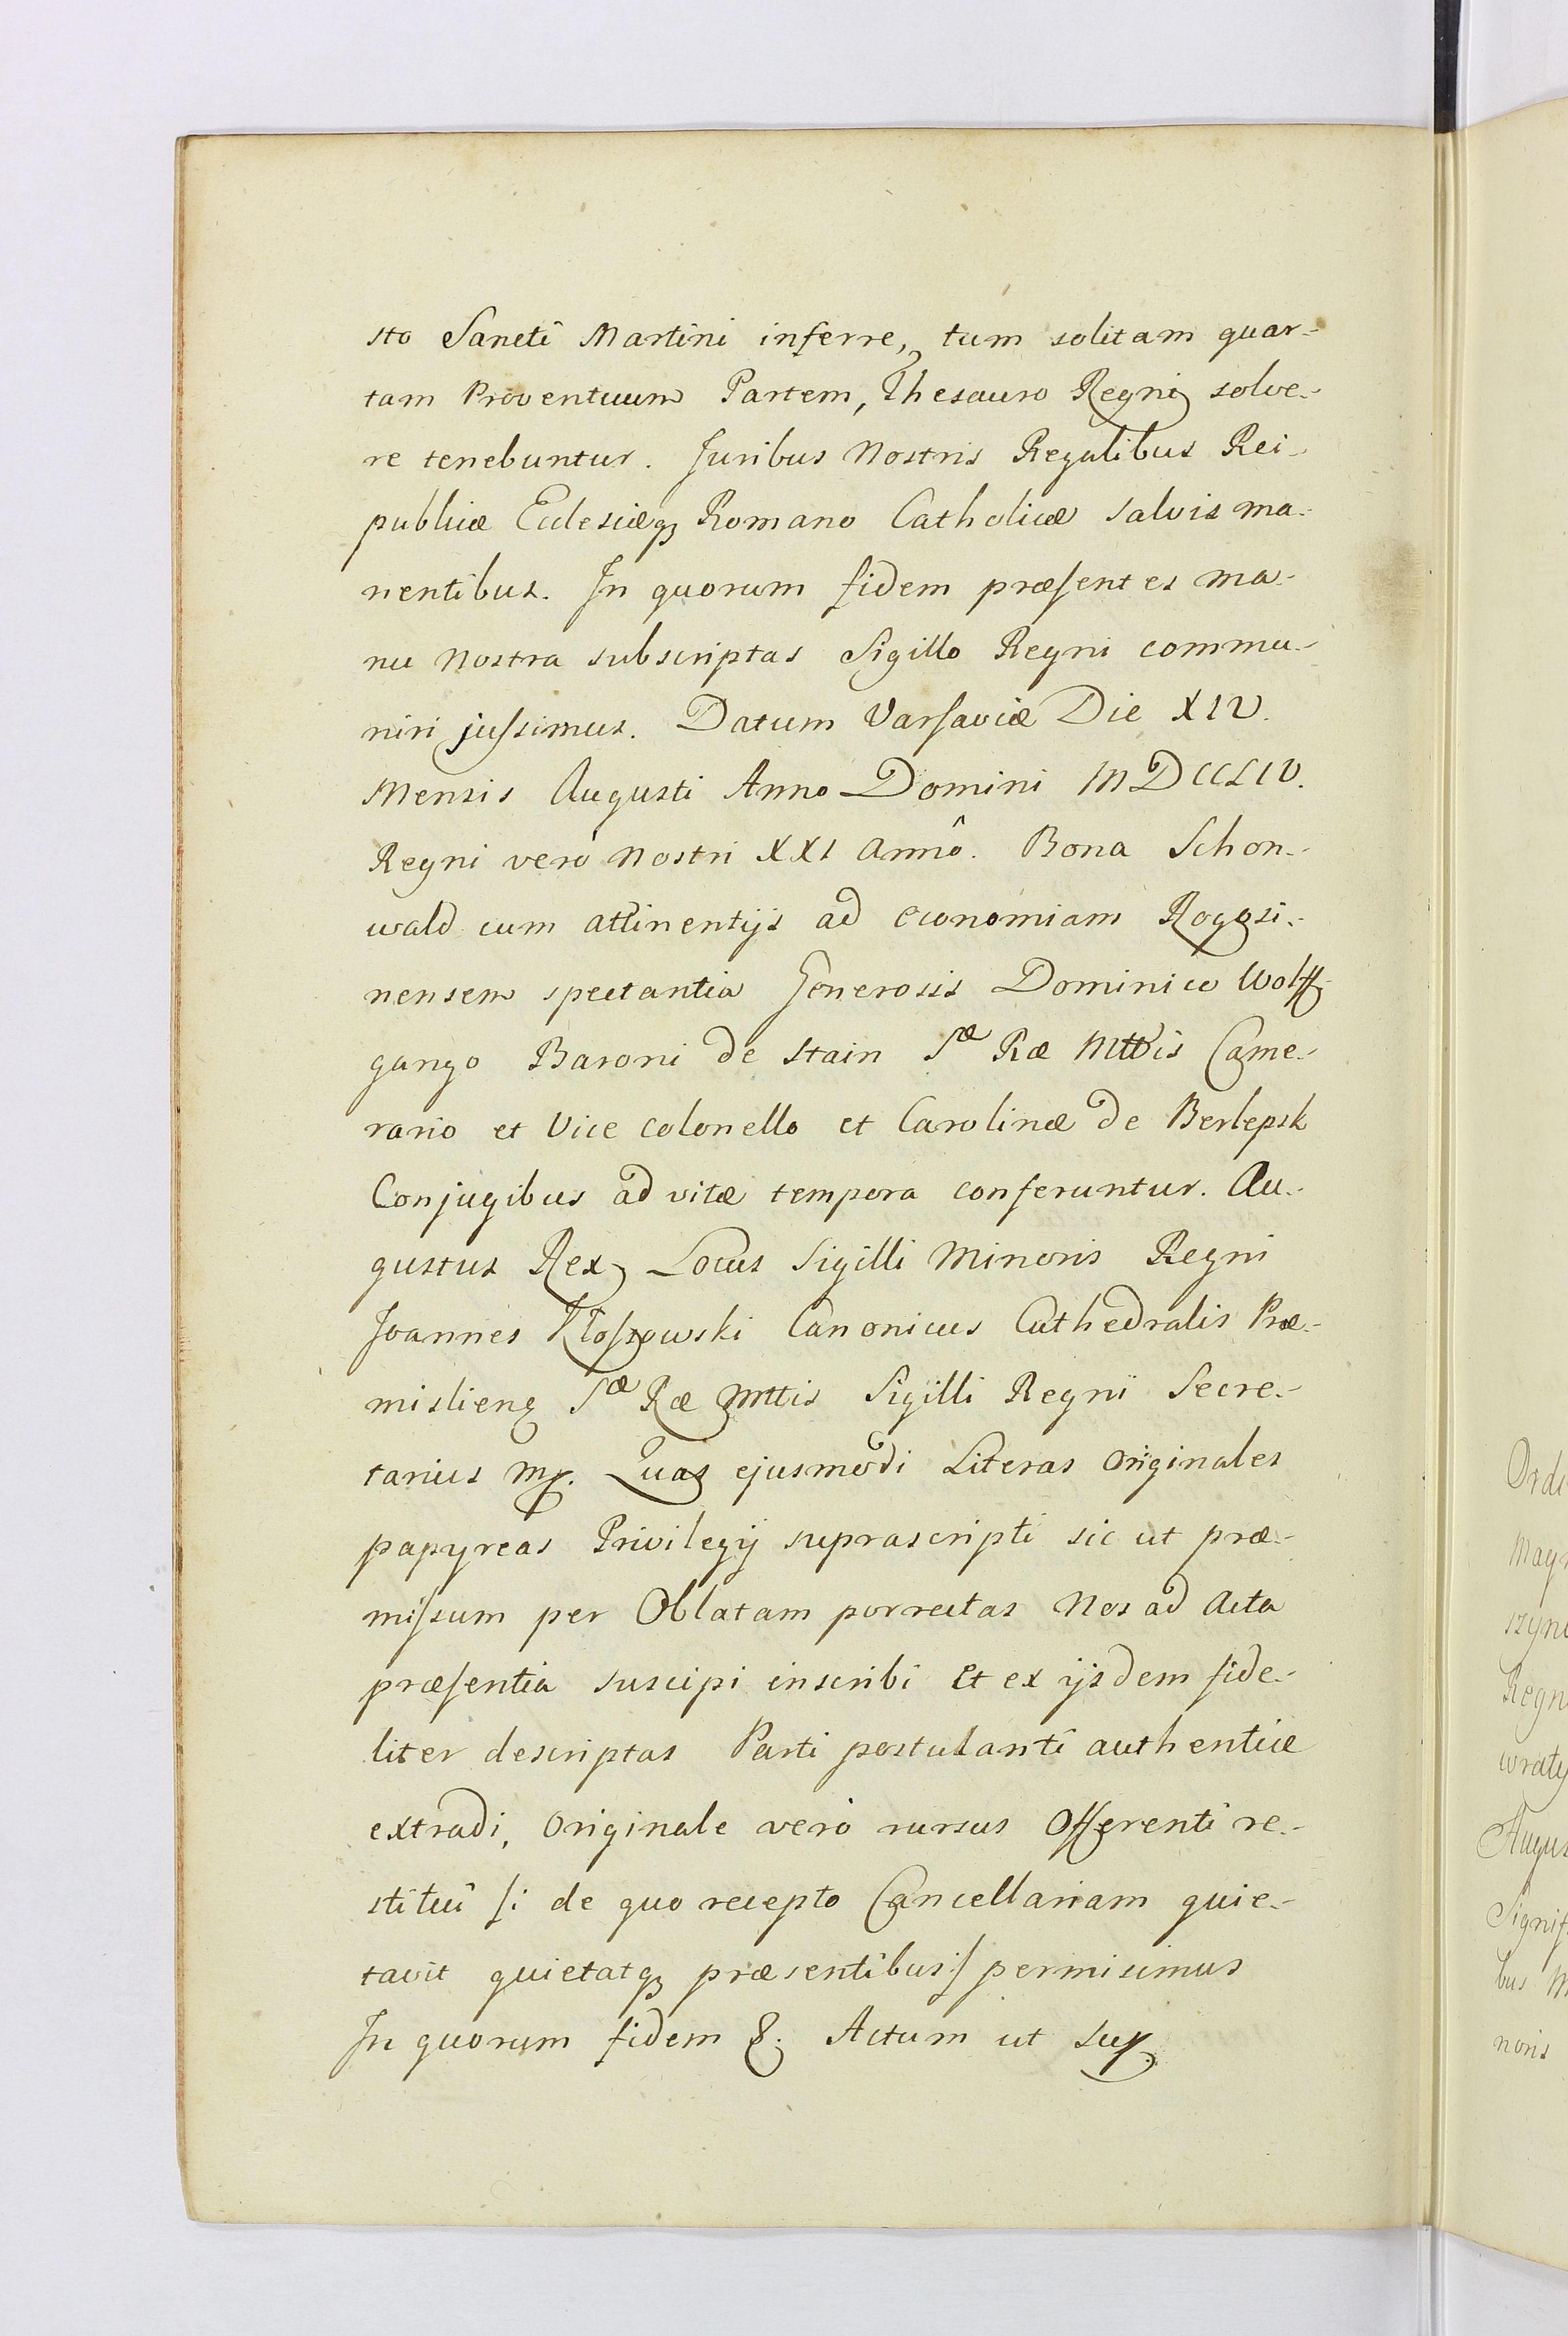 sto Sancti Martini inferre, tum solitam quar-
tam Proventuum Partem, Thesauro Regni solve-
re tenebuntur. Juribus Nostris Regalibus Rei-
publicæ Ecclesiæq; Romano Catholicæ salvis ma-
nentibus. In quorum fidem præsentes ma-
nu Nostra subscriptas Sigillo Regni commu-
niri jussimus. Datum Varsaviæ Die XIV.
Mensis Augusti Anno Domini MDCCLIV.
Regni verò Nostri XXI annô. Bona Schon-
wald cum attinentijs ad economiam Rogosi-
nensem spectantia Generosis Dominico Wolff-
gango Baroni de Stain Sæ Ræ Mttis Came-
rario et Vice colonello et Carolinæ de Berlepsk
Conjugibus ad vitæ tempora conferuntur. Au-
gustus Rex Locus Sigilli Minoris Regni
Joannes Kłossowski Canonicus Cathedralis Præ-
mislien Sæ Ræ Mttis Sigilli Regni Secre-
tarius mp. Quas ejusmodi Literas originales
papyreas Privilegij suprascripti sic ut præ-
missum per Oblatam porrectas Nos ad Acta
præsentia suscipi inscribi et ex ijsdem fide-
liter descriptas Parti postulanti authenticæ
extradi, originale verò rursus Offerenti re-
stitui /: de quo recepto Cancellariam quie-
tavit quietatq; præsentibus :/ permisimus
In quorum fidem &. Actum ut sup.
Ordi
Mag
szyn
Regn
wraty
Augus
Signif
bus M
noris